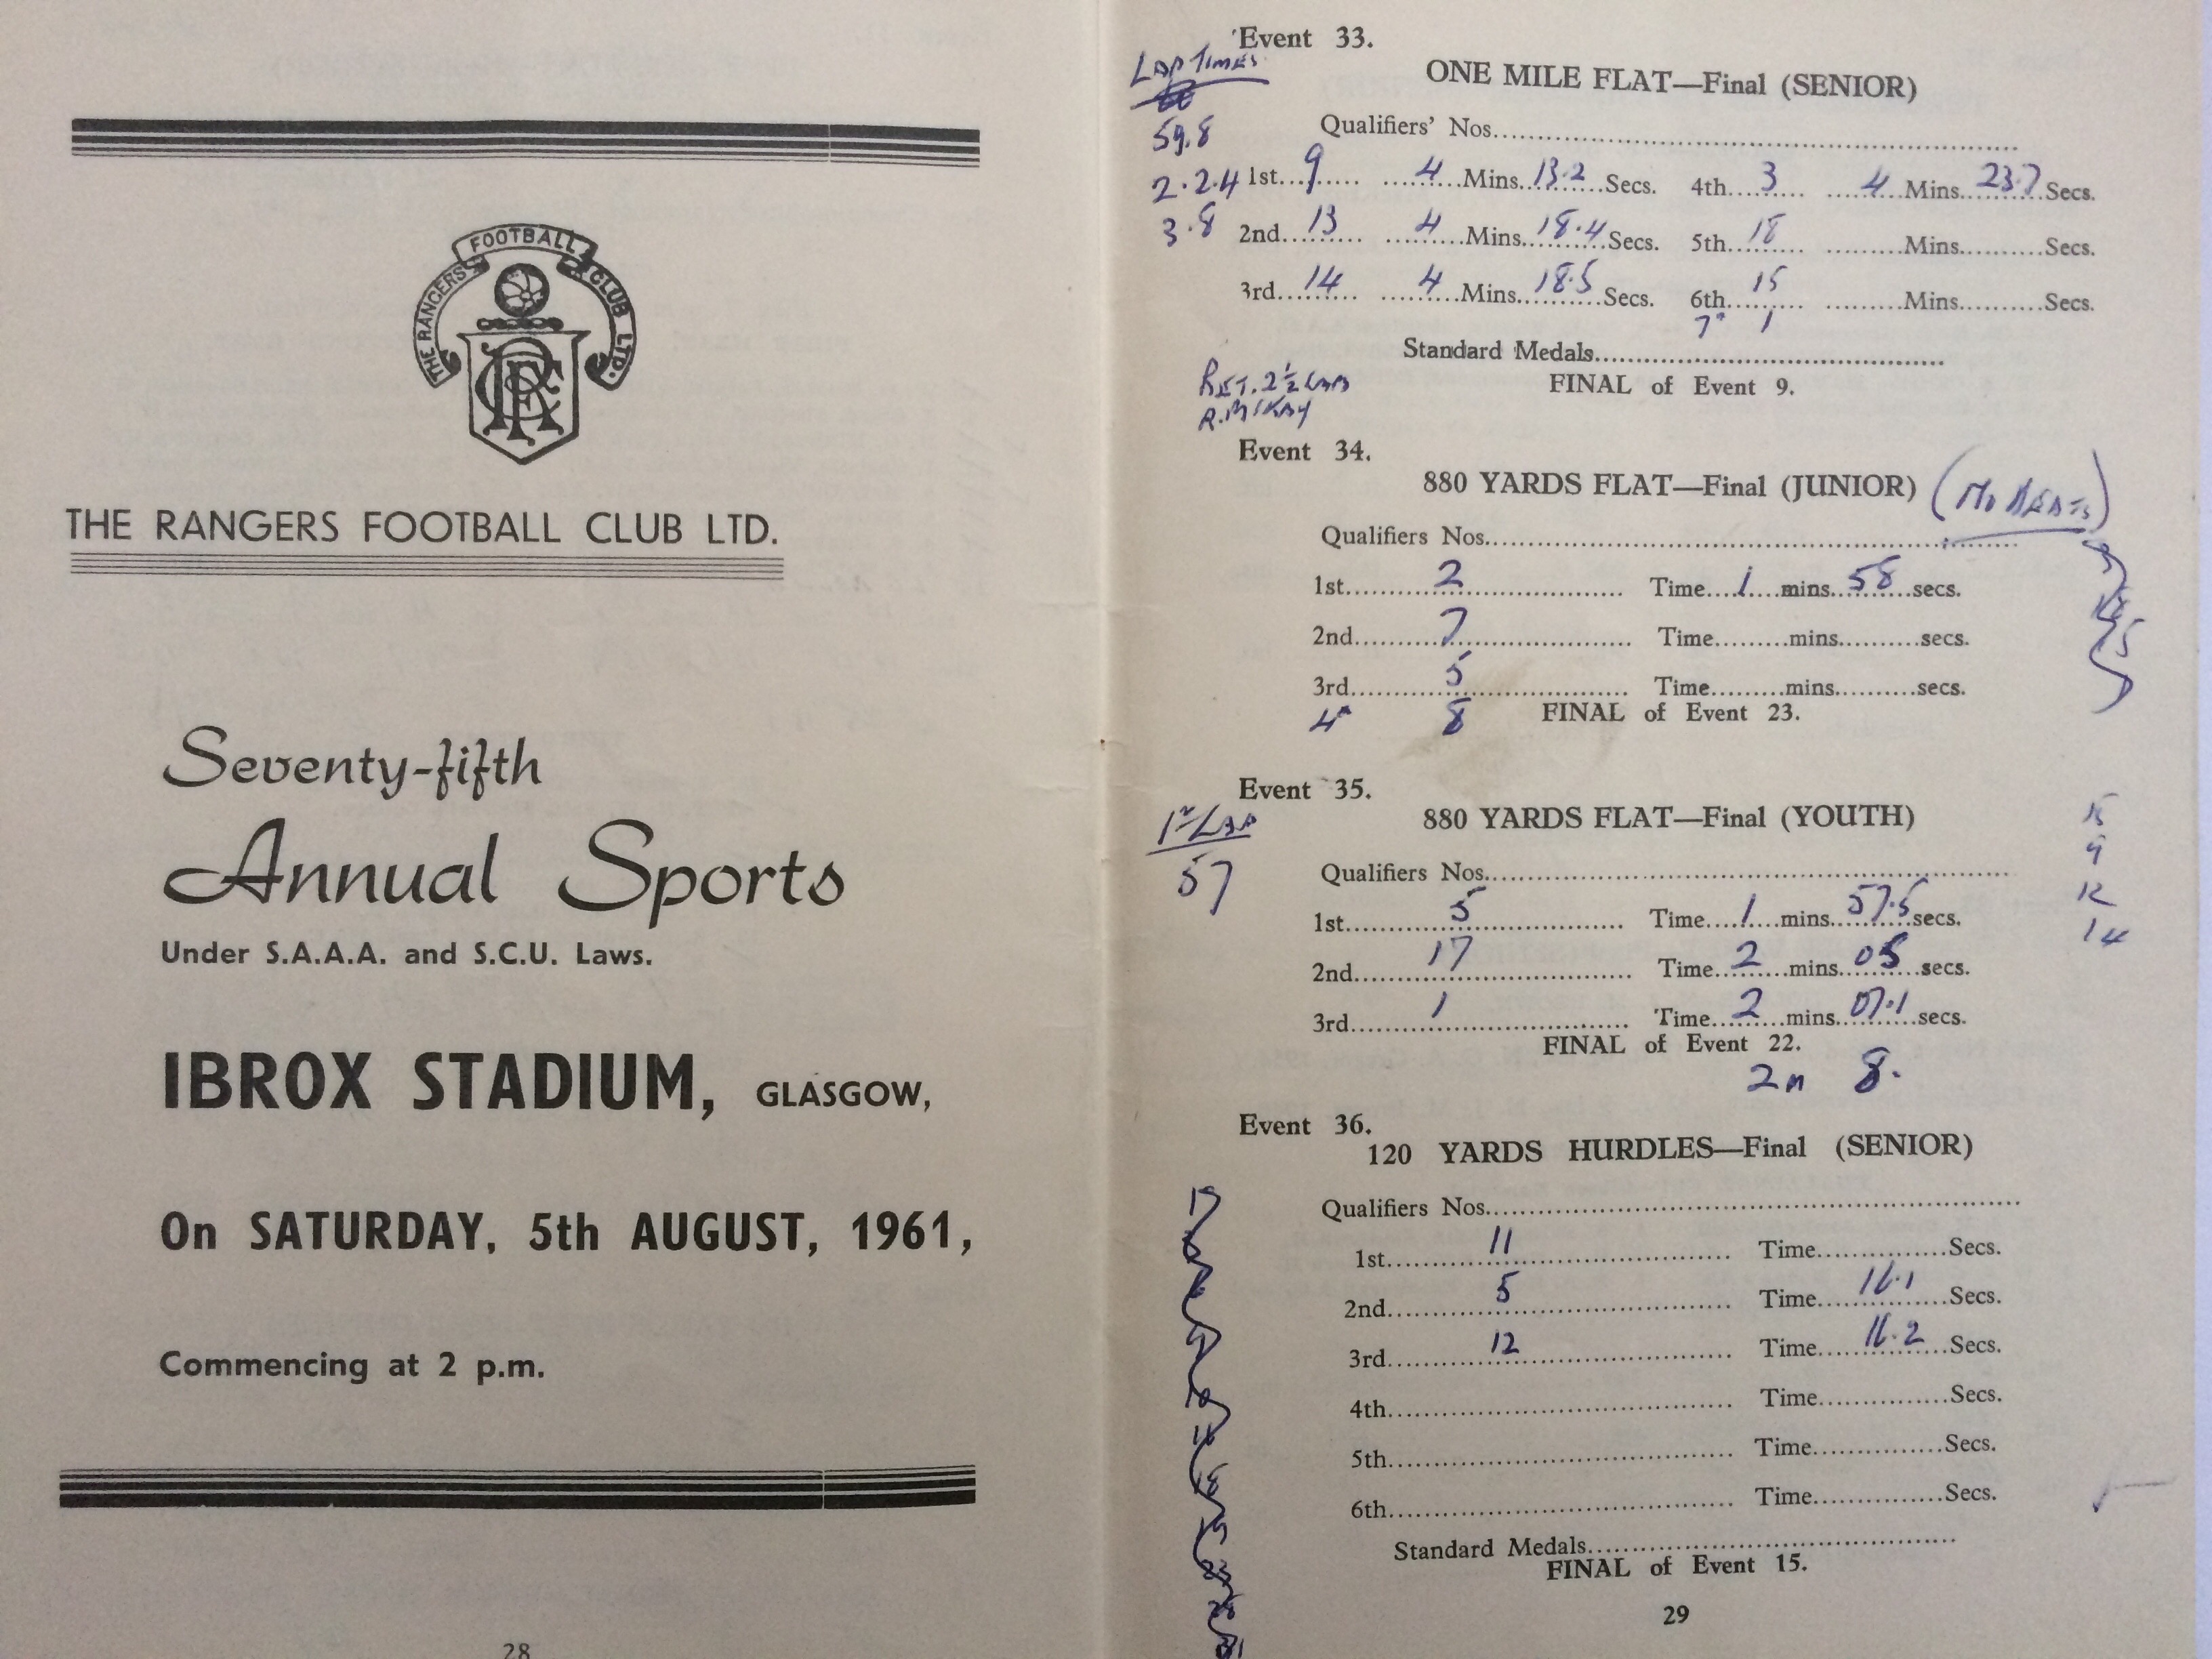 THE RANGERS FOOTBALL CLUB LTD.
THE RANGERS FOOTBALL CLUB LTD.
Seventy-fifth
Annual Sports
Under S.A.A.A. and S.C.U. Laws.
IBROX STADIUM, GLASGOW,
On SATURDAY, 5th AUGUST, 1961,
Commencing at 2 p.m.
28
Event 33.
LAP TIMES
ONE MILE FLAT—Final (SENIOR)
59.8
Qualifiers' Nos.
2.2.4
1st... 9 ... 4 ...Mins. 13.2 Secs. 4th... 3 ... 4 ...Mins. 23.7 Secs.
3.8
2nd... 13 ... 4 ...Mins. 18.4 Secs. 5th... 18 ... Mins... Secs.
3rd... 14 ... 4 ...Mins. 18.5 Secs. 6th... 15 ... Mins... Secs.
7" 1
Standard Medals
RET. 2½ LAPS
R. McKAY
FINAL of Event 9.
Event 34.
880 YARDS FLAT—Final (JUNIOR) (No HEATS)
Qualifiers Nos.
1st... 2 ... Time... 1 ...mins. 58 secs.
2nd... 7 ... Time...mins...secs.
3rd... 5 ... Time...mins...secs.
4" 8
FINAL of Event 23.
Event 35.
880 YARDS FLAT—Final (YOUTH)
1st LAP
57
Qualifiers Nos.
9
12
14
1st... 5 ... Time... 1 ...mins. 57.5 secs.
2nd... 17 ... Time... 2 ...mins. 05 secs.
3rd... 1 ... Time... 2 ...mins. 07.1 secs.
FINAL of Event 22.
2m 8.
Event 36.
120 YARDS HURDLES—Final (SENIOR)
Qualifiers Nos.
1st... 11 ... Time...Secs.
2nd... 5 ... Time... 16.1 Secs.
3rd... 12 ... Time... 16.2 Secs.
4th... Time...Secs.
5th... Time...Secs.
6th... Time...Secs.
Standard Medals
FINAL of Event 15.
29